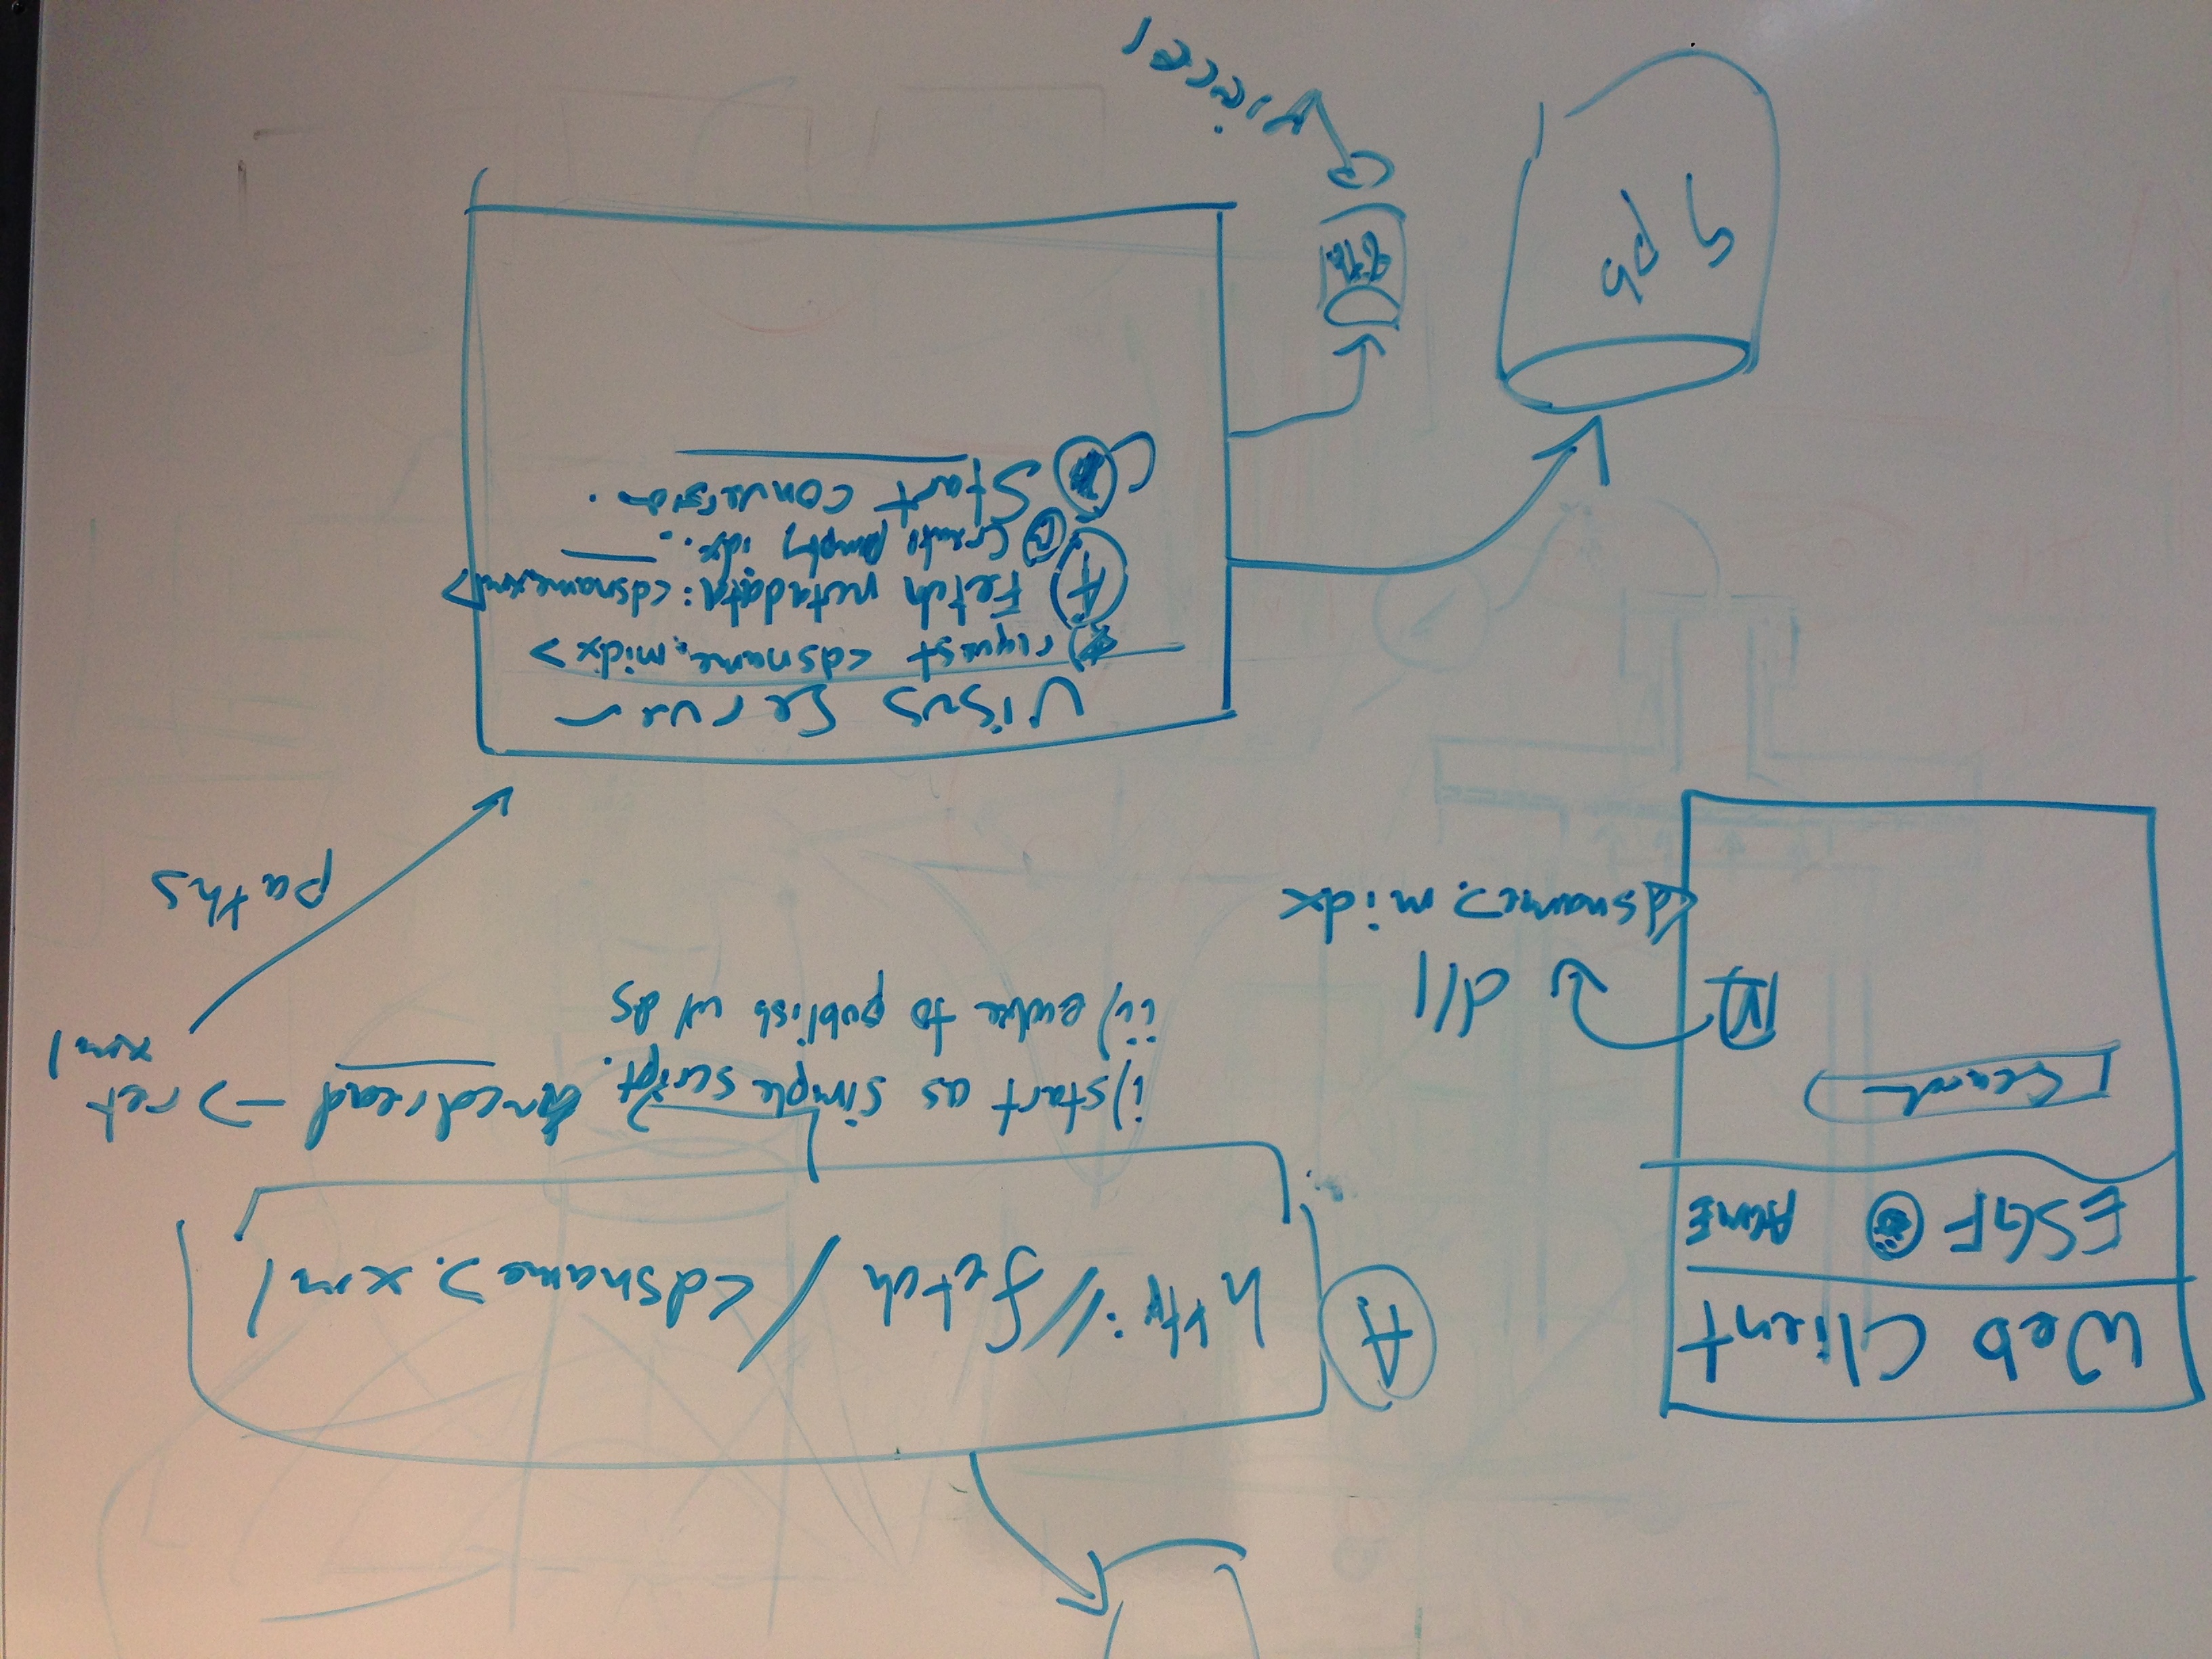 Web Client
ESGF ACME
Search
V
d/l
<dsname>.midx
A
http://fetch/<dsname>.xml
i) start as simple script.
cdread -> ret
xml
ii) evolve to publish w/ ds
paths
Visus Server
request <dsname.midx>
A Fetch metadata: <dsname.xml>
B Create empty idx..
C Start conversion.
pb